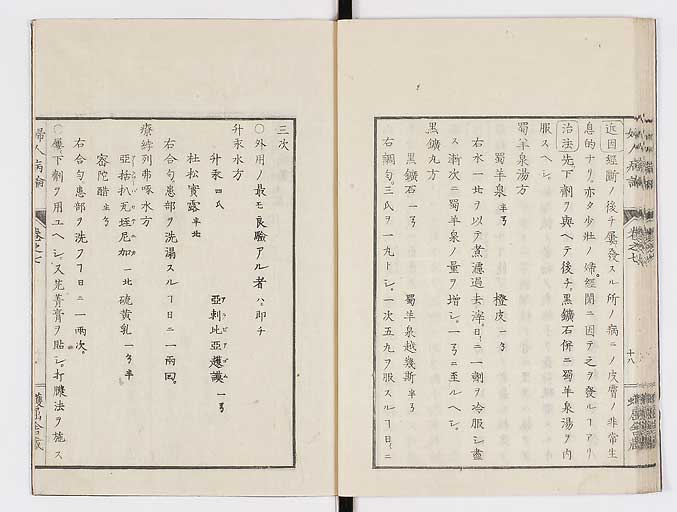 近因經斷ノ後チ屢發スル所ノ病ニノ皮膚ノ非常生
息的ナリ亦タ少壯ノ婦經閉ニ因テ之ヲ發ルヿアリ
治法先下劑ヲ與ヘテ後チ黑鑛石併ニ蜀羊泉湯ヲ內
服スヘシ
蜀羊泉湯方
蜀羊泉 半ヲ 橙皮 一ヲ
右水一北ヲ以テ煮濾過去滓日ニ一劑ヲ冷服シ盡
ス漸次ニ蜀羊泉ノ量ヲ增シ一ヲニ至ルヘシ
黑鑛丸方
黑鑛石 一ヲ 蜀羊泉越幾斯 半ヲ
右調勻三氏ヲ一丸トシ一次五丸ヲ服スルヿ日ニ
三次
○外用ノ最モ良驗アル者ハ即チ
升汞水方
升汞 四氏 亞刺比亞護謨 一ヲ
杜松實露 半北
右合勻患部ヲ洗滌スルヿ日ニ一兩回
療綍列弗啄水方
亞括扒尤蛭尼加 一北 硫黃乳 一ヲ半
密陀醋
右合勻患部ヲ洗フヿ日ニ一兩次
○屢下劑ヲ用ユヘシ又芫菁膏ヲ貼シ打膿法ヲ施ス
婦人病論
卷之七
十八